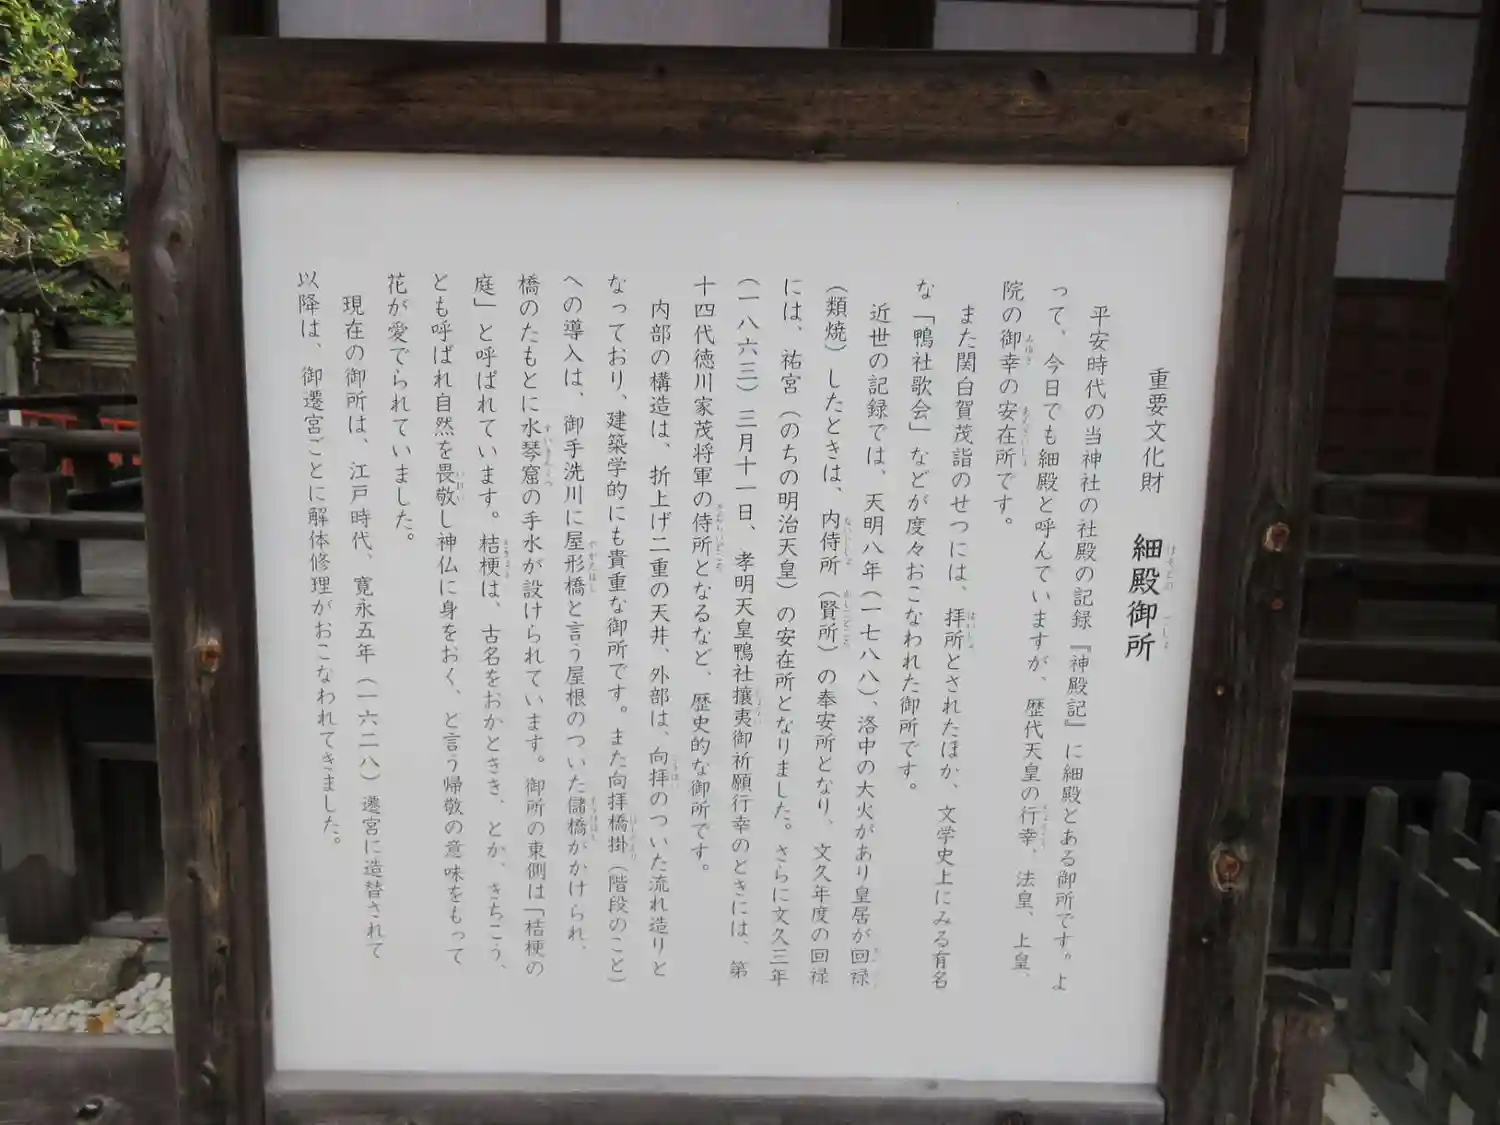 重要文化財　細殿御所
平安時代の当神社の社殿の記録『神殿記』に細殿とある御所です。よ
って、今日でも細殿と呼んでいますが、歴代天皇の行幸、法皇、上皇、
院の御幸の安在所です。
また関白賀茂詣のせつには、拝所とされたほか、文学史上にみる有名
な「鴨社歌会」などが度々おこなわれた御所です。
近世の記録では、天明八年（一七八八）、洛中の大火があり皇居が回禄
（類焼）したときは、内侍所（賢所）の奉安所となり、文久年度の回禄
には、祐宮（のちの明治天皇）の安在所となりました。さらに文久三年
（一八六三）三月十一日、孝明天皇鴨社攘夷御祈願行幸のときには、第
十四代徳川家茂将軍の侍所となるなど、歴史的な御所です。
内部の構造は、折上げ二重の天井、外部は、向拝のついた流れ造りと
なっており、建築学的にも貴重な御所です。また向拝橋掛（階段のこと）
への導入は、御手洗川に屋形橋と言う屋根のついた儲橋がかけられ、
橋のたもとに水琴窟の手水が設けられています。御所の東側は「桔梗の
庭」と呼ばれています。桔梗は、古名をおかときき、とか、きちこう、
とも呼ばれ自然を畏敬し神仏に身をおく、と言う帰敬の意味をもって
花が愛でられていました。
現在の御所は、江戸時代、寛永五年（一六二八）遷宮に造替されて
以降は、御遷宮ごとに解体修理がおこなわれてきました。